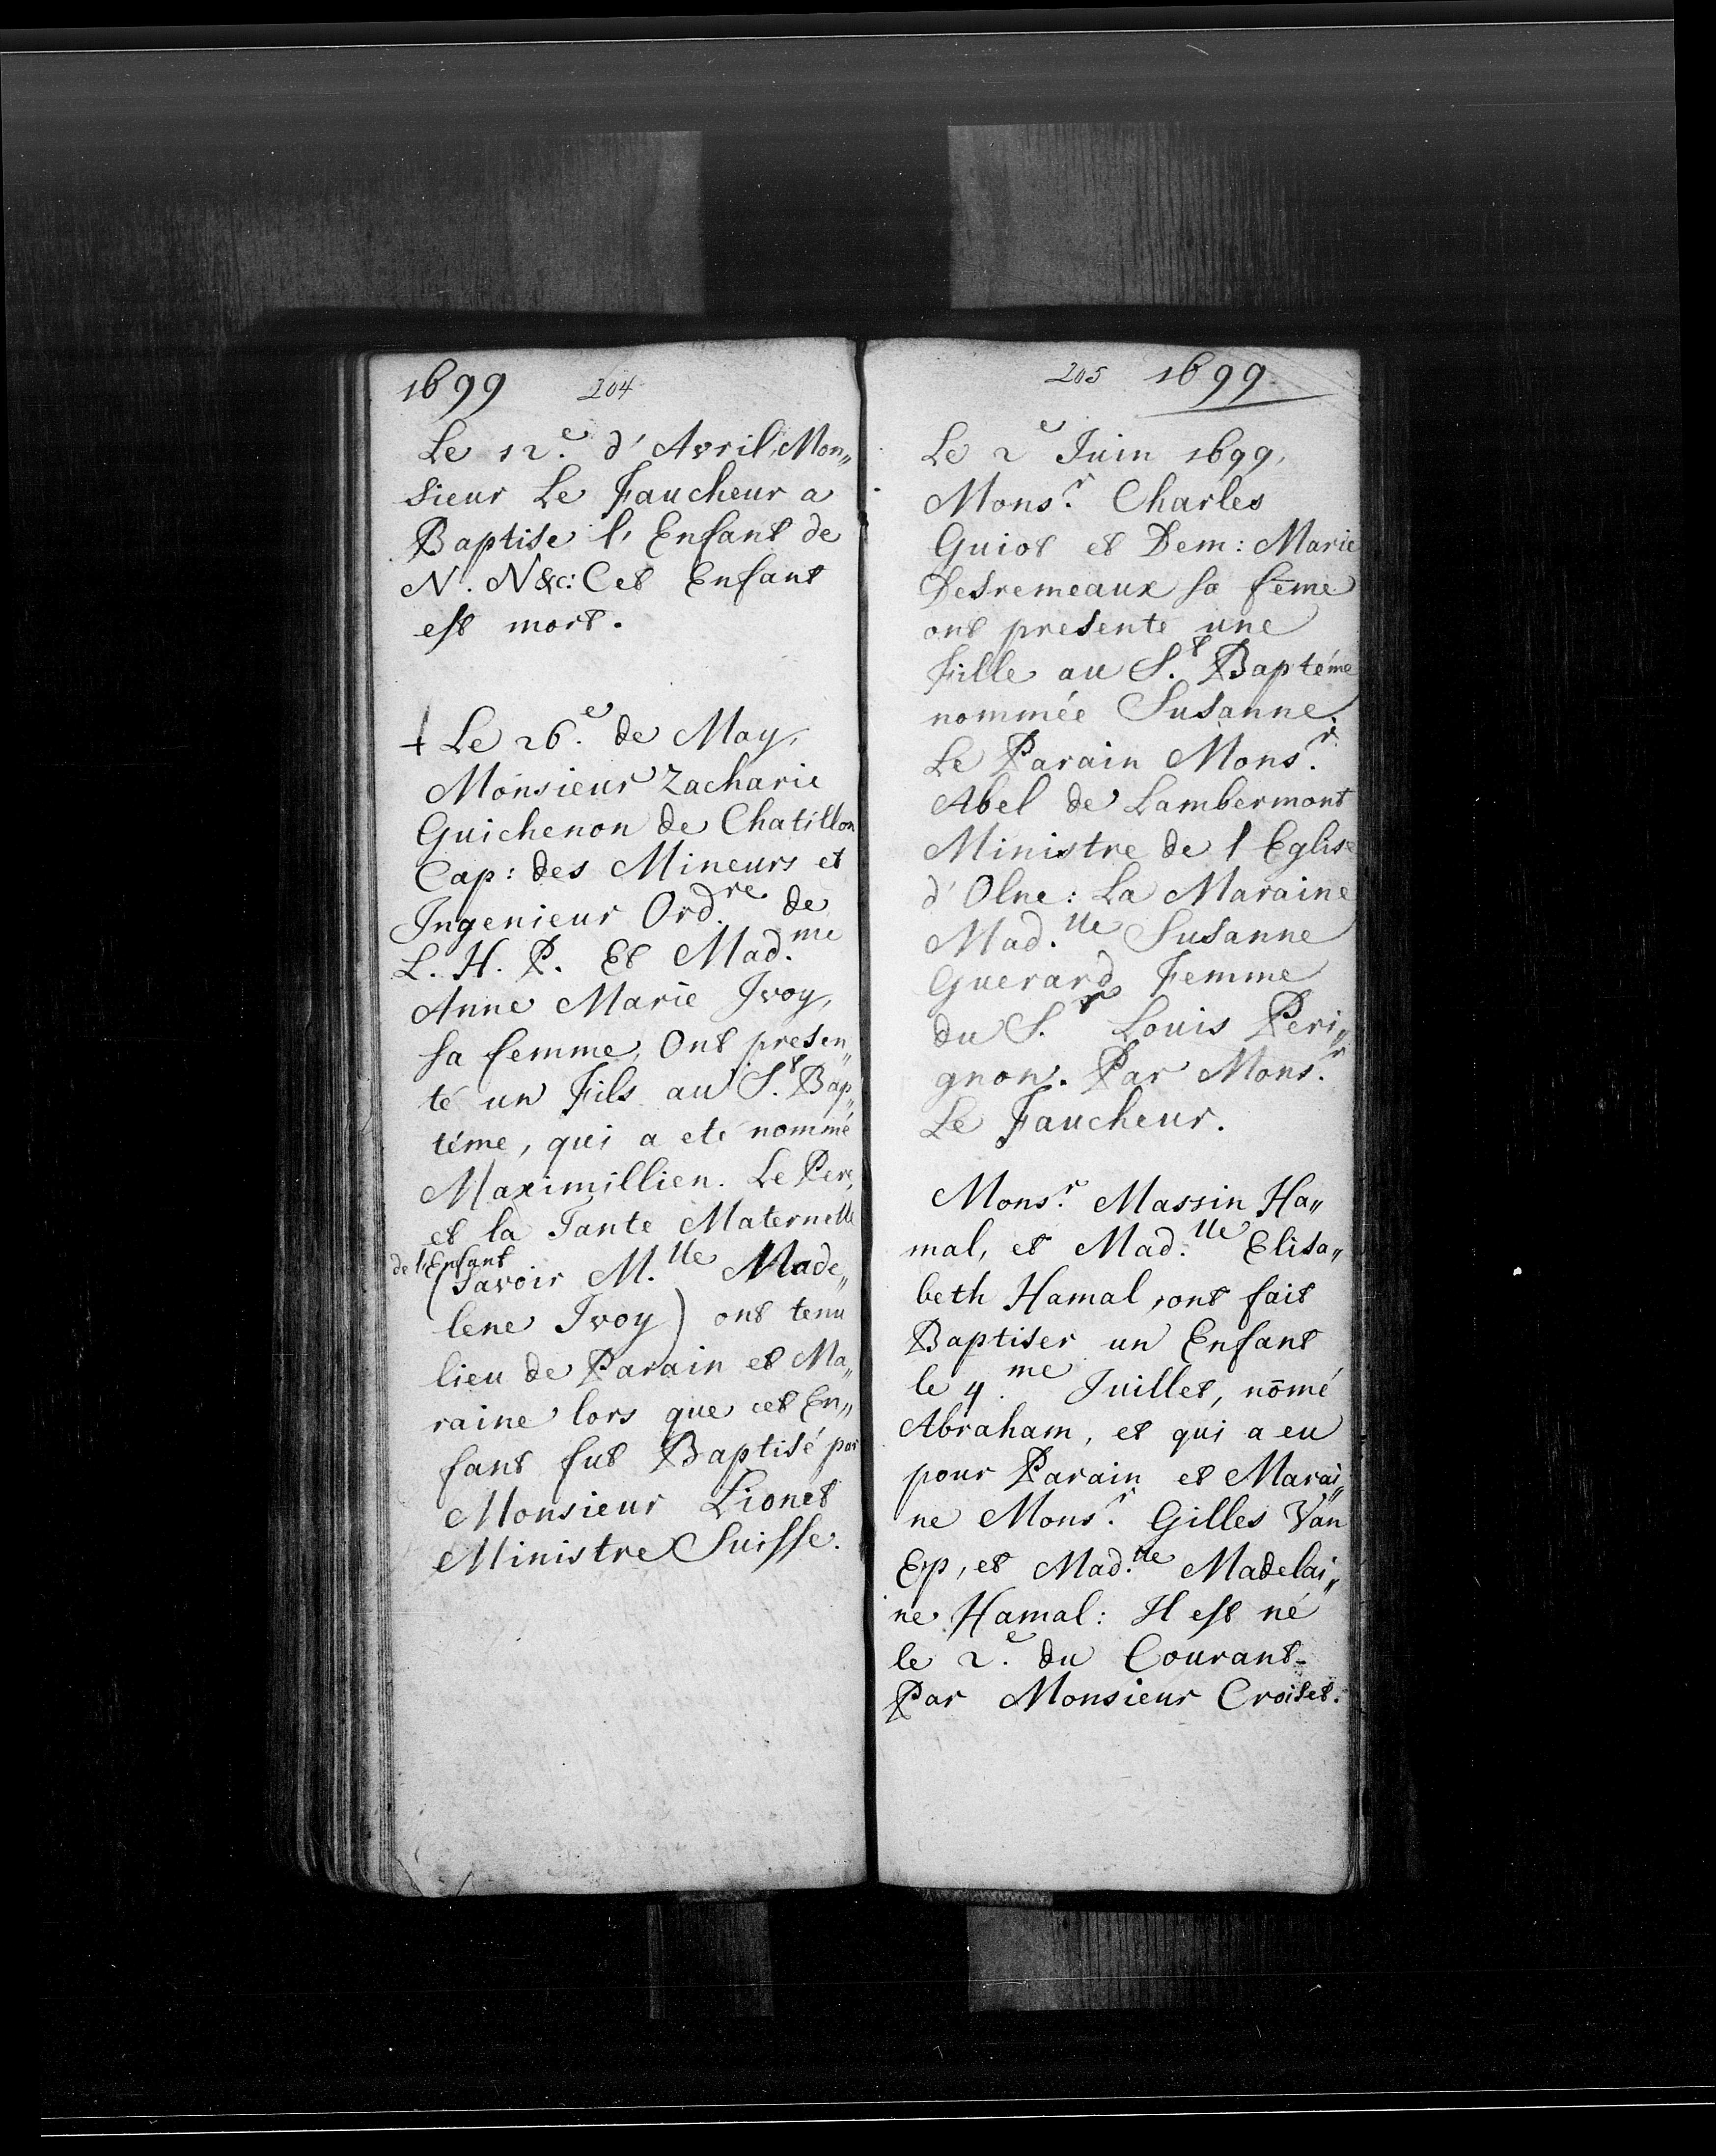 1699 204
Le 12.e d'Avril, Mon„
sieur Le Faucheur a
Baptise l'Enfant de
N. N &c: Cet Enfant
est mort.
† Le 26.e de May,
Monsieur Zacharie
Guichenon de Chatillon
Cap: des Mineurs et
Ingenieur Ord.re de
L. H. P. Et Mad.me
Anne Marie Ivoy,
sa femme, Ont presen„
té un Fils au S.t Bap„
téme, qui a eté nommé
Maximillien. Le Pere,
et la Tante Maternelle
de l'Enfant
(savoir M.lle Made„
lene Ivoy) ont tenu
lieu de Parain et Ma„
raine lors que cet En„
fant fut Baptisé par
Monsieur Lionet
Ministre Suisse.
205 1699.
Le 2e Juin 1699,
Mons.r Charles
Guiot et Dem: Marie
Desremeaux sa fēme
ont presenté une
fille au S.t Baptéme
nommée Susanne.
Le Parain Mons.r
Abel de Lambermont
Ministre de l Eglise
d'Olne: La Maraine
Mad.lle Susanne
Guerard Femme
du S.r Louis Peri„
gnon. Par Mons.r
Le Faucheur.
Mons.r Massin Ha„
mal, et Mad.lle Elisa„
beth Hamal, ont fait
Baptiser un Enfant
le 4.me Juillet, nōmé
Abraham, et qui a eu
pour Parain et Marai„
ne Mons.r Gilles Van
Ep, et Mad.lle Madelai„
ne Hamal: Il est né
le 2.e du Courant.
Par Monsieur Croiset.